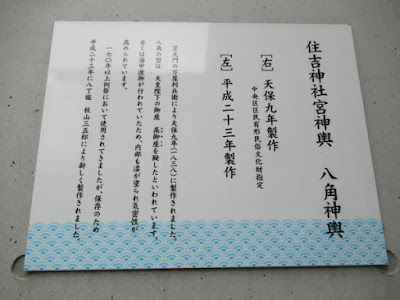 住吉神社宮神輿　八角神輿
［右］天保九年製作
中央区区民有形民俗文化財指定
［左］平成二十三年製作
芝大門の万屋利兵衛により天保九年(一八三八)に製作されました。
八角の型は、天皇陛下の御座　高御座を擬したといわれています。
古くは海中渡御が行われていたため、内部も漆が塗られ気密性が
高められています。
一七〇年以上例祭において使用されてきましたが、保存のため
平成二十三年に八丁堀　秋山三五郎により新しく製作されました。